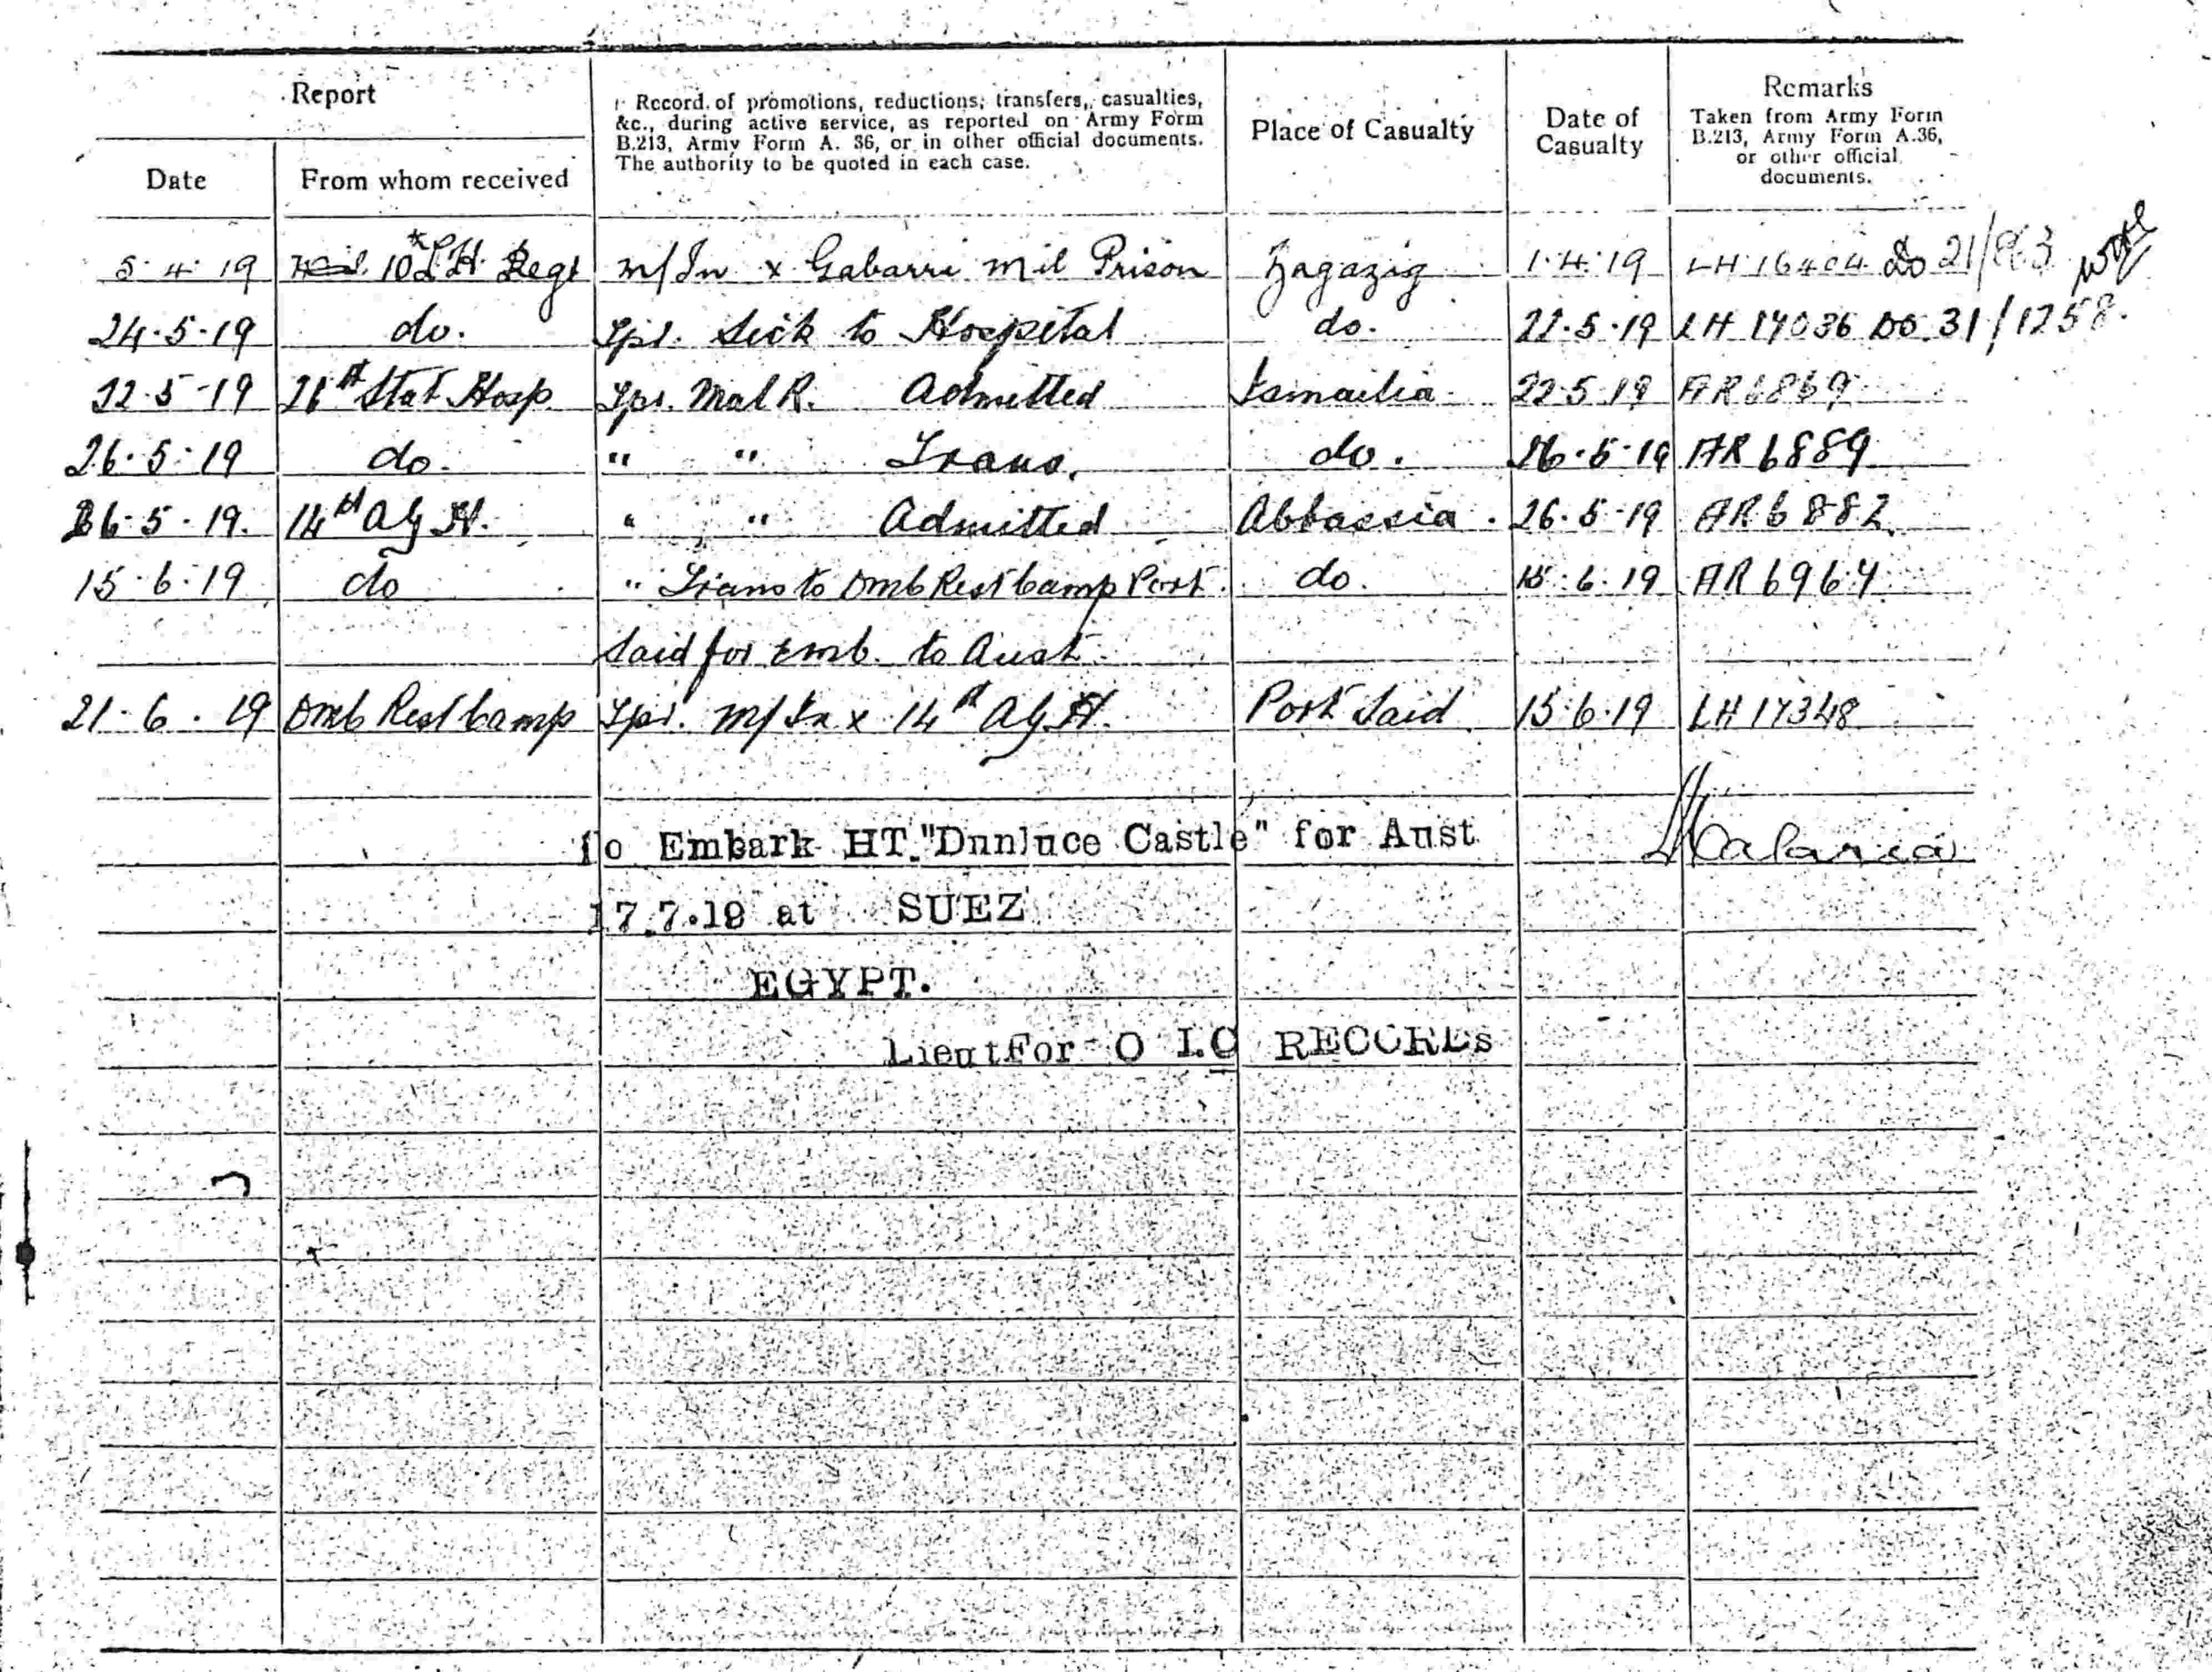 Report
Record of promotions, reductions, transfers, casualties,
&c., during active service, as reported on Army Form
B.213, Army Form A. 36, or in other official documents.
The authority to be quoted in each case.
Place of Casualty
Date of
Casualty
Remarks
Taken from Army Form
B.213, Army Form A.36,
or other official
documents.
Date
From whom received
5.4.19 10 L.H. Regt M/In x Gabarri Mil Prison Zagazig 1.4.19 LH 16404 Do 21/863
24.5.19 do. Tpr. Sick to Hospital do. 22.5.19 LH 17036 DO 31/1258.
22.5.19 26th Stat Hosp Tpr. Mal R. Admitted Ismailia 22.5.19 AR6869
26.5.19 do. " " Trans. do. 26.5.19 AR6889
26.5.19. 14th AGH. " " Admitted Abbassia. 26.5.19 AR6882
15.6.19 do " Trans to Dmb Rest Camp Port do. 15.6.19 AR6964
Said for Emb. to Aust.
21.6.19 Dmb Rest Camp Tpr. M/In x 14th AGH. Port Said 15.6.19 LH17348
To Embark HT."Dunluce Castle" for Aust Malaria
17.7.19 at SUEZ
EGYPT.
Lieut For O I.C RECORDs